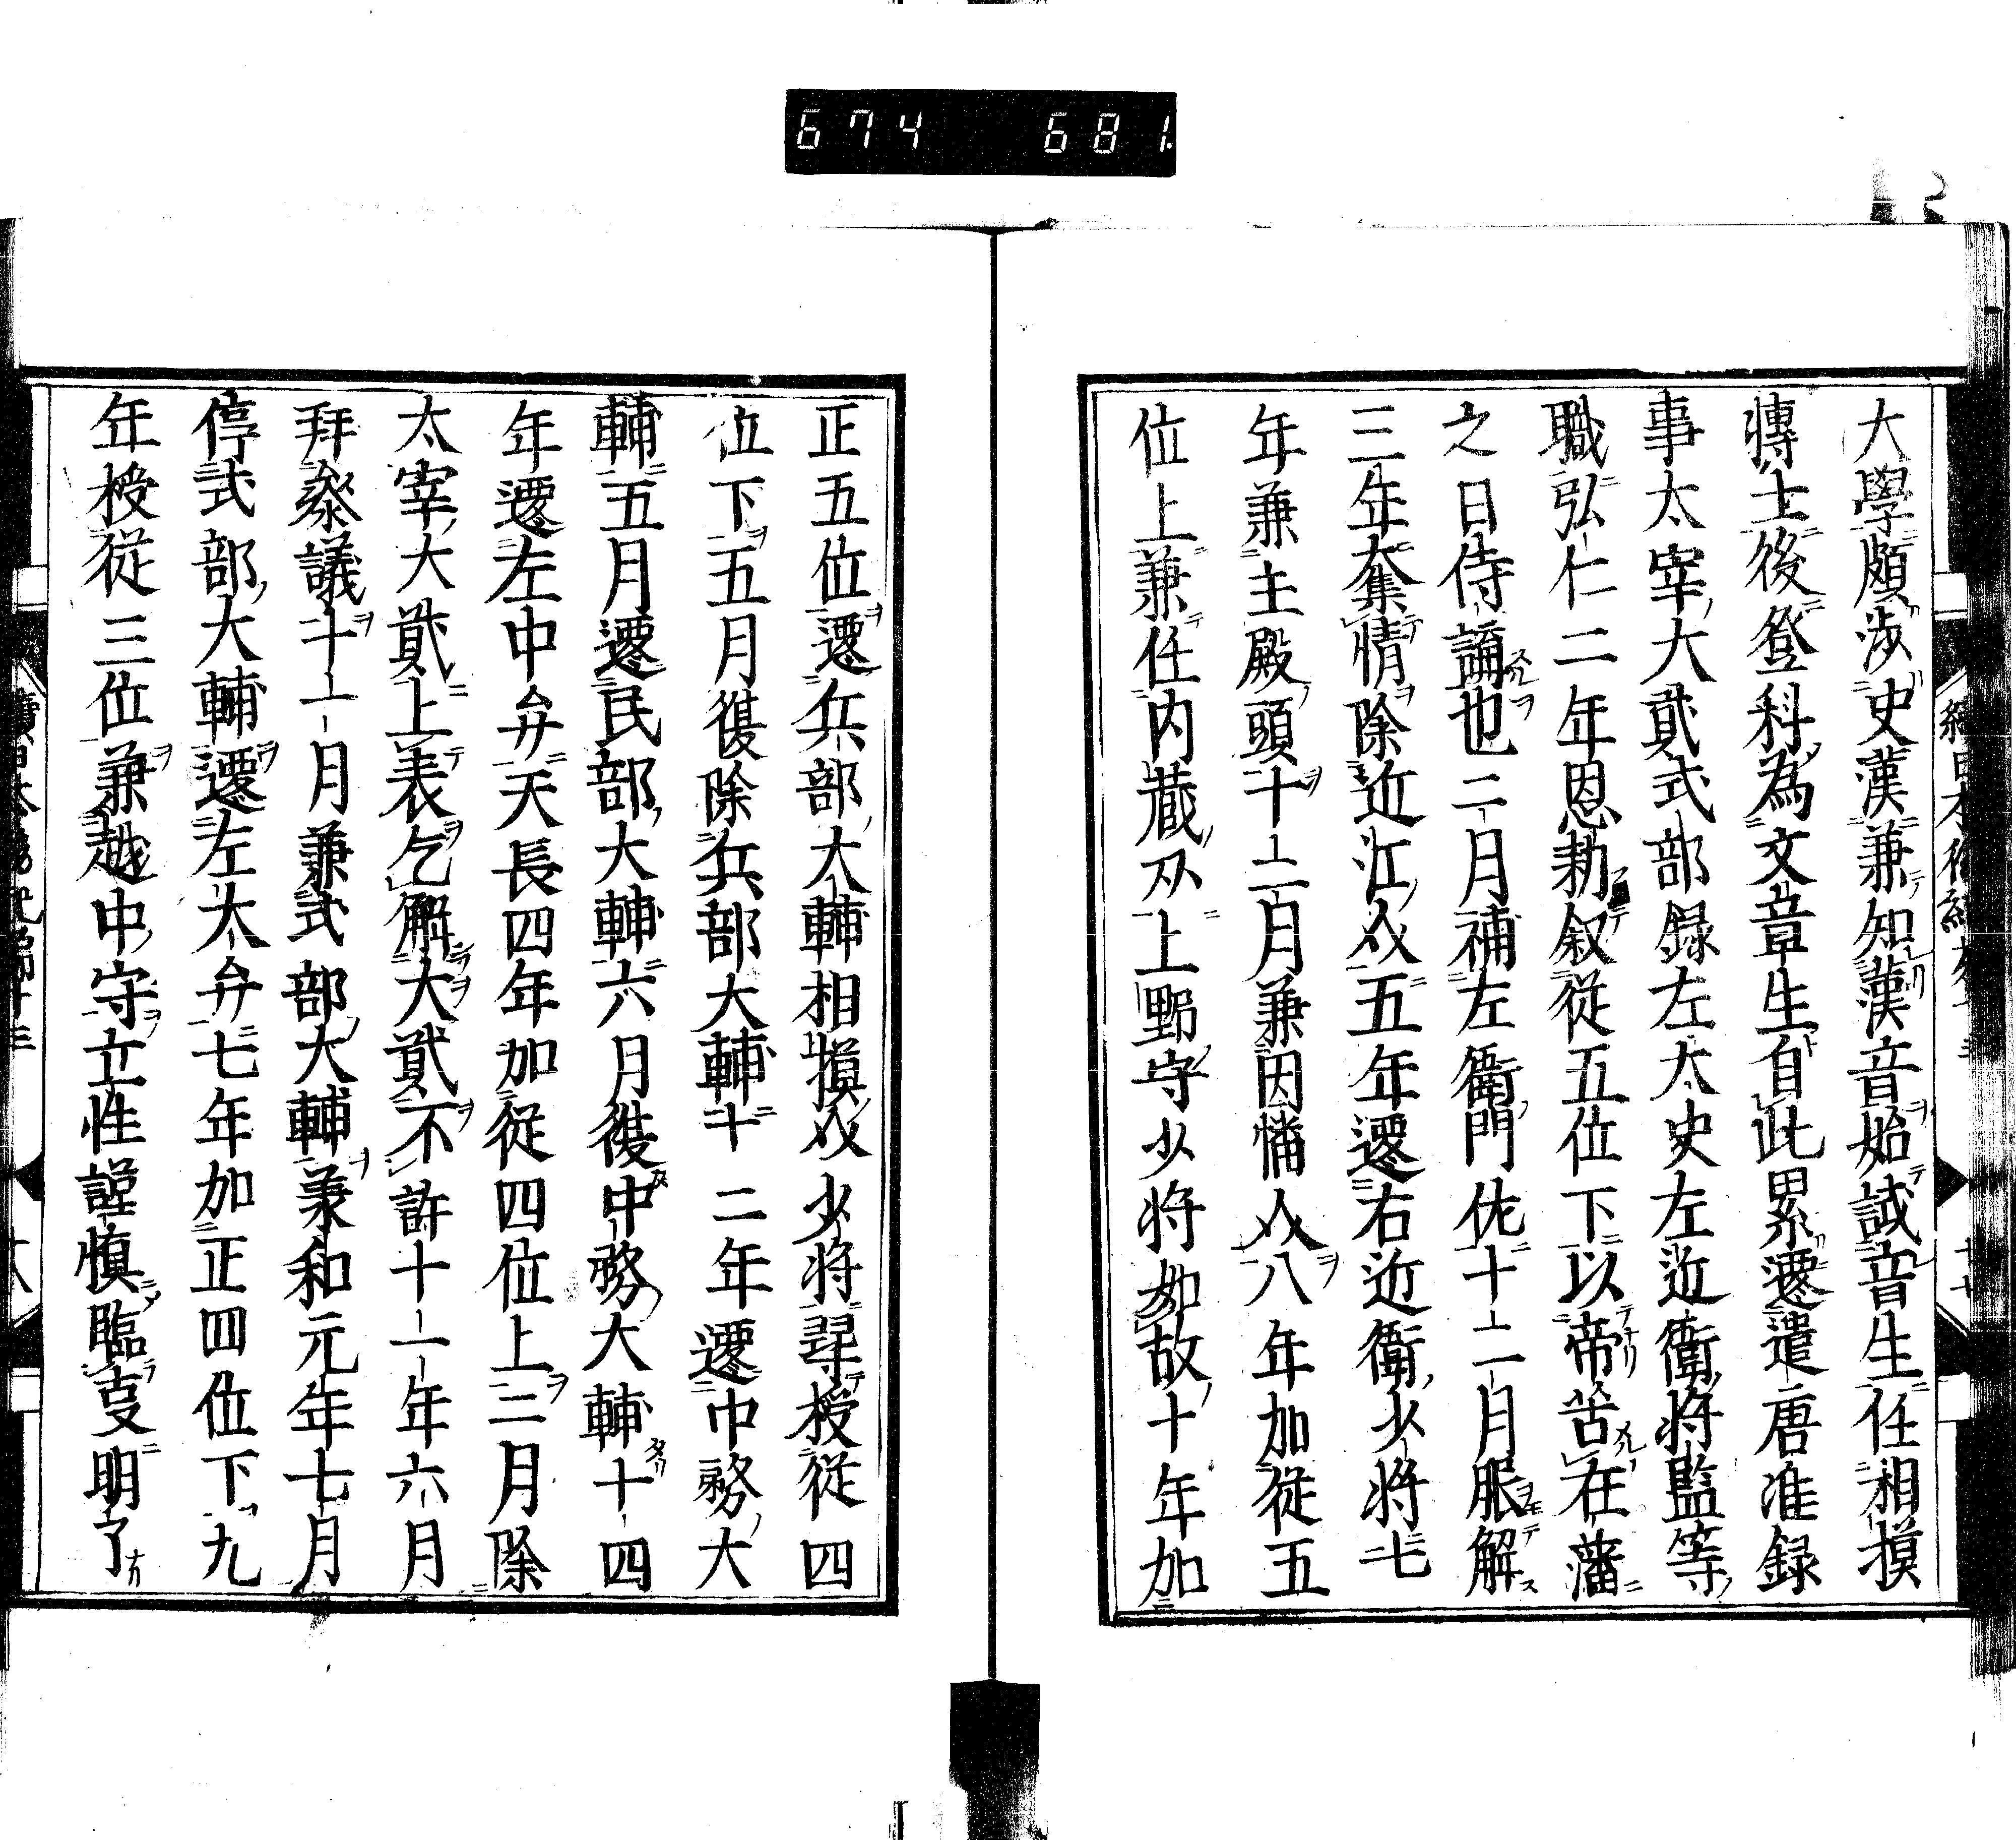 674 681
大學頗渉史漢兼知漢音始試音生任相摸
博士後登科為文章生自此累遷遣唐准録
事太宰大貳式部録左太史左近衛将監等
職弘仁二年恩勅叙從五位下以帝苦在藩
之日侍論也二月補左衛門佐十二月服解
三年奪情除近江介五年遷右近衛少将七
年兼主殿頭十二月兼因幡介八年加從五
位上兼任内藏頭上野守少将如故十年加
正五位遷兵部大輔相摸介少将尋授從四
位下五月復除兵部大輔十二年遷中務大
輔五月遷民部大輔六月復中務大輔十四
年遷左中弁天長四年加從四位上二月除
太宰大貳上表乞解大貳不許十一年六月
拜叅議十一月兼式部大輔兼和元年七月
停式部大輔遷左大弁七年加正四位下九
年授從三位兼越中守立性謹慎臨叓明了